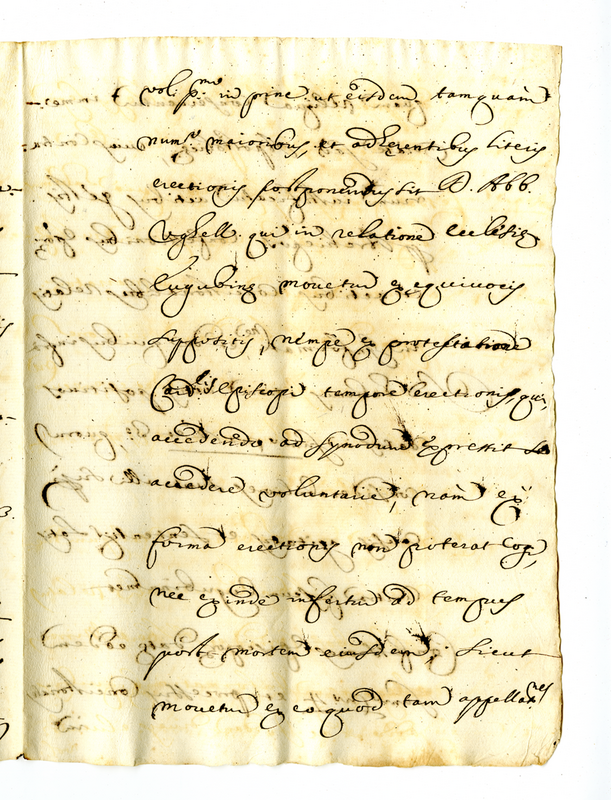 voli p.mo in princ. ut eisdem tamquam
num.o maioribus, et adherentibus literis
erectionis postponendus sit D. Abb.
Ughell. qui in relatione Ecclesię
Eugubinę mouetur ex equiuocis
suppositis, nempe ex protestatione
Card.lis Episcopi tempore erectionis, qui
accedendo ad synodum expressit se
accedere voluntarie, nam ex
forma erectionis non poterat cogi,
nec exinde infertur ad tempus
post mortem eiusdem, sicut
mouetur ex eo quod tam appellao.nes